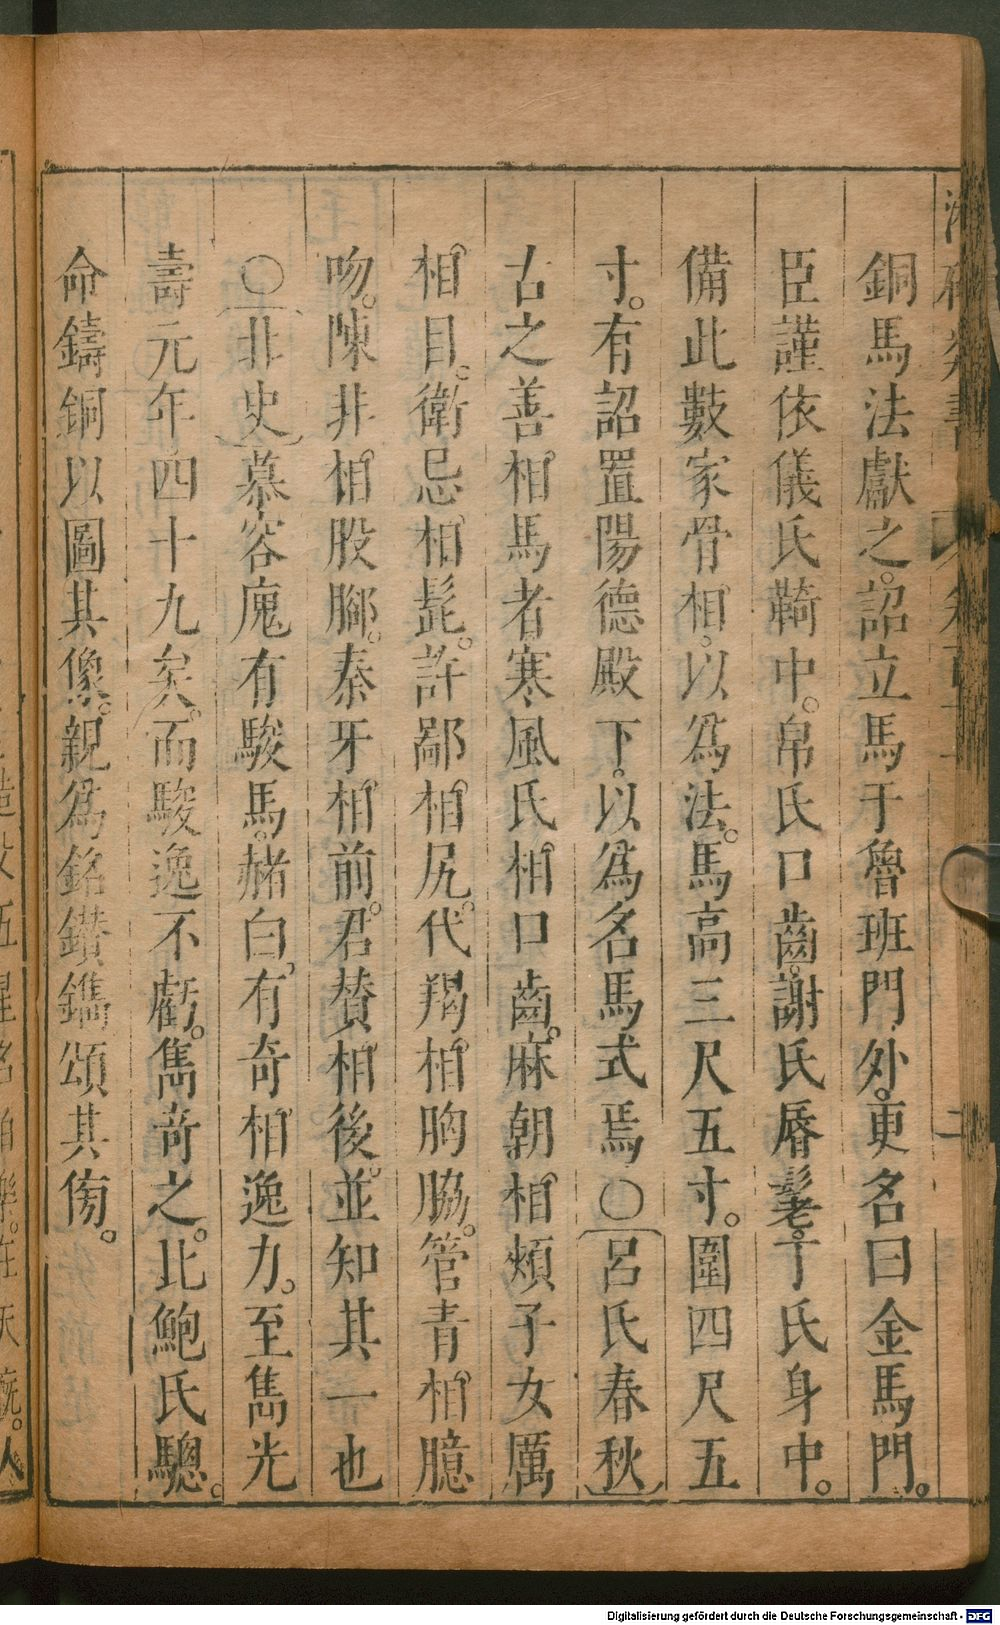 銅馬法獻之。詔立馬于魯班門外。更名曰金馬門。
臣謹依儀氏䩭中。帛氏口齒。謝氏唇鬐。丁氏身中。
備此數家骨相。以爲法。馬高三尺五寸。圍四尺五
寸。有詔置陽德殿下。以爲名馬式焉〇呂氏春秋
古之善相馬者。寒風氏相口齒。麻朝相頰子女厲
相目。衛忌相髭。許鄙相尻。代羯相胸脇。管青相臆
吻。陳非相股腳。秦牙相前。君賛相後。並知其一也
〇非史慕容廆有駿馬。赭白。有奇相逸力。至雋光
壽元年。四十九矣。而駿逸不虧。雋奇之。比鮑氏驄。
命鑄銅以圖其像。親爲銘鐫頌其傍。
Digitalisierung gefördert durch die Deutsche Forschungsgemeinschaft - DFG